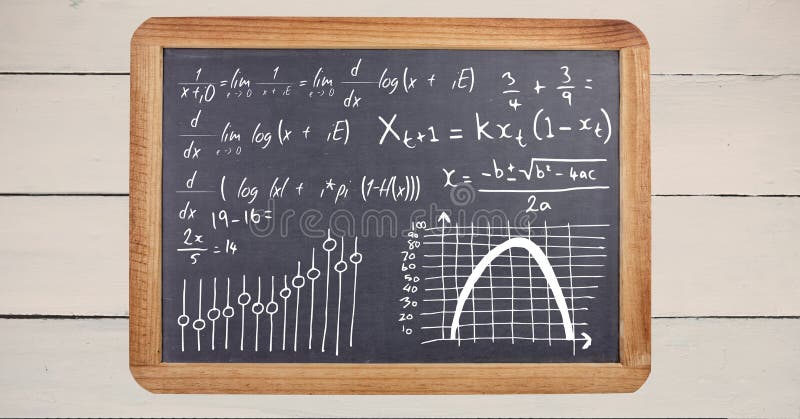 1/(x+i0) = lim ε→0 1/(x+iE) = lim ε→0 d/dx log(x + iE)
3/4 + 3/9 =
d/dx lim ε→0 log(x + iE)
X_{t+1} = kx_t (1-x_t)
d/dx ( log |x| + i*pi (1-H(x)))
x = (-b ± √(b² - 4ac))/2a
19-16=
2x/5 = 14
100
90
80
70
60
50
40
30
20
10